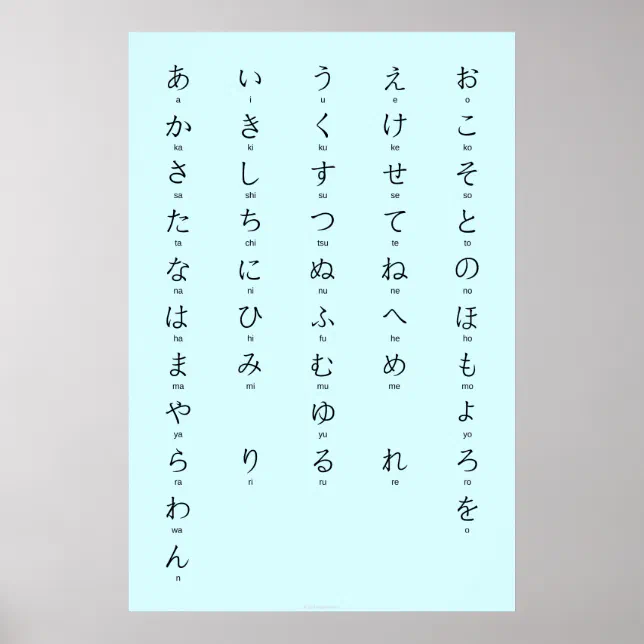 あ い う え お
a i u e o
か き く け こ
ka ki ku ke ko
さ し す せ そ
sa shi su se so
た ち つ て と
ta chi tsu te to
な に ぬ ね の
na ni nu ne no
は ひ ふ へ ほ
ha hi fu he ho
ま み む め も
ma mi mu me mo
や ゆ よ
ya yu yo
ら り る れ ろ
ra ri ru re ro
わ を
wa o
ん
n